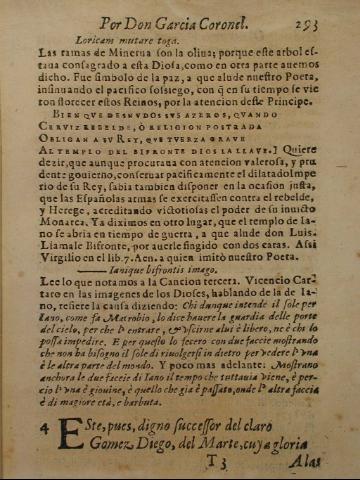 Por Don Garcia Coronel. 293
Loricam mutare toga.
Las ramas de Minerua son la oliua; porque este arbol es-
taua consagrado a esta Diosa, como en otra parte auemos
dicho. Fue simbolo de la paz, a que alude nuestro Poeta,
insinuando el pacifico sossiego, con q̃ en su tiempo se vie
ron florecer estos Reinos, por la atencion deste Principe.
BIEN QUE DESNUDOS SVS AZEROS, QUANDO
CERVIZ REBELDE, O RELIGION POSTRADA
OBLIGAN A SU REY, QUE TUERZA GRAVE
AL TEMPLO DEL BIFRONTE DIOS LA LLAVE.] Quiere
dezir, que aunque procuraua con atencion valerosa, y pru
dente gouierno, conseruar pacificamente el dilatado Impe
rio de su Rey, sabia tambien disponer en la ocasion justa,
que las Españolas armas se exercitassen contra el rebelde,
y Herege, acreditando victoriosas el poder de su inuicto
Monarca. Ya diximos en otro lugar, que el templo de Ia-
no se abria en tiempo de guerra, a que alude don Luis.
Llamale Bifronte, por auerle fingido con dos caras. Assi
Virgilio en el lib. 7. Aen. a quien imitò nuestro Poeta.
Ianique bifrontis imago.
Lee lo que notamos a la Cancion tercera. Vicencio Car-
taro en las imagenes de los Dioses, hablando de la de Ia-
no, refiere la causa diziendo: Chi dunque intende il sole per
Iano, come fa Macrobio, lo dice hauere la guardia delle porte
del cielo, per che l' entrare, & uscirne alui è libero, ne è chi lo
possa impedire. E per questo lo fecero con due faccie mostrando
che non ha bisogno il sole di riuolgersi in dietro per vedere l' vna
è le altra parte del mondo. Y poco mas adelante: Mostrano
anchora le due faccie di Iano il tempo che tuttauia viene, è per-
cio l' vna è giouine, è quello che gia è passato, onde l' altra faccia
è di magiore età, e barbuta.
4 Este, pues, digno successor del claro
Gomez Diego, del Marte, cuya gloria
T 3 Alas